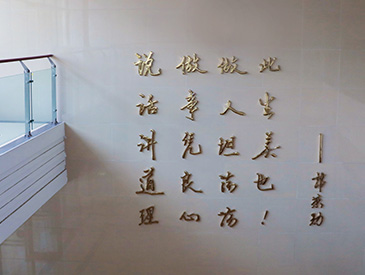 说话讲道理
做事凭良心
做人坦荡荡
此生美也！